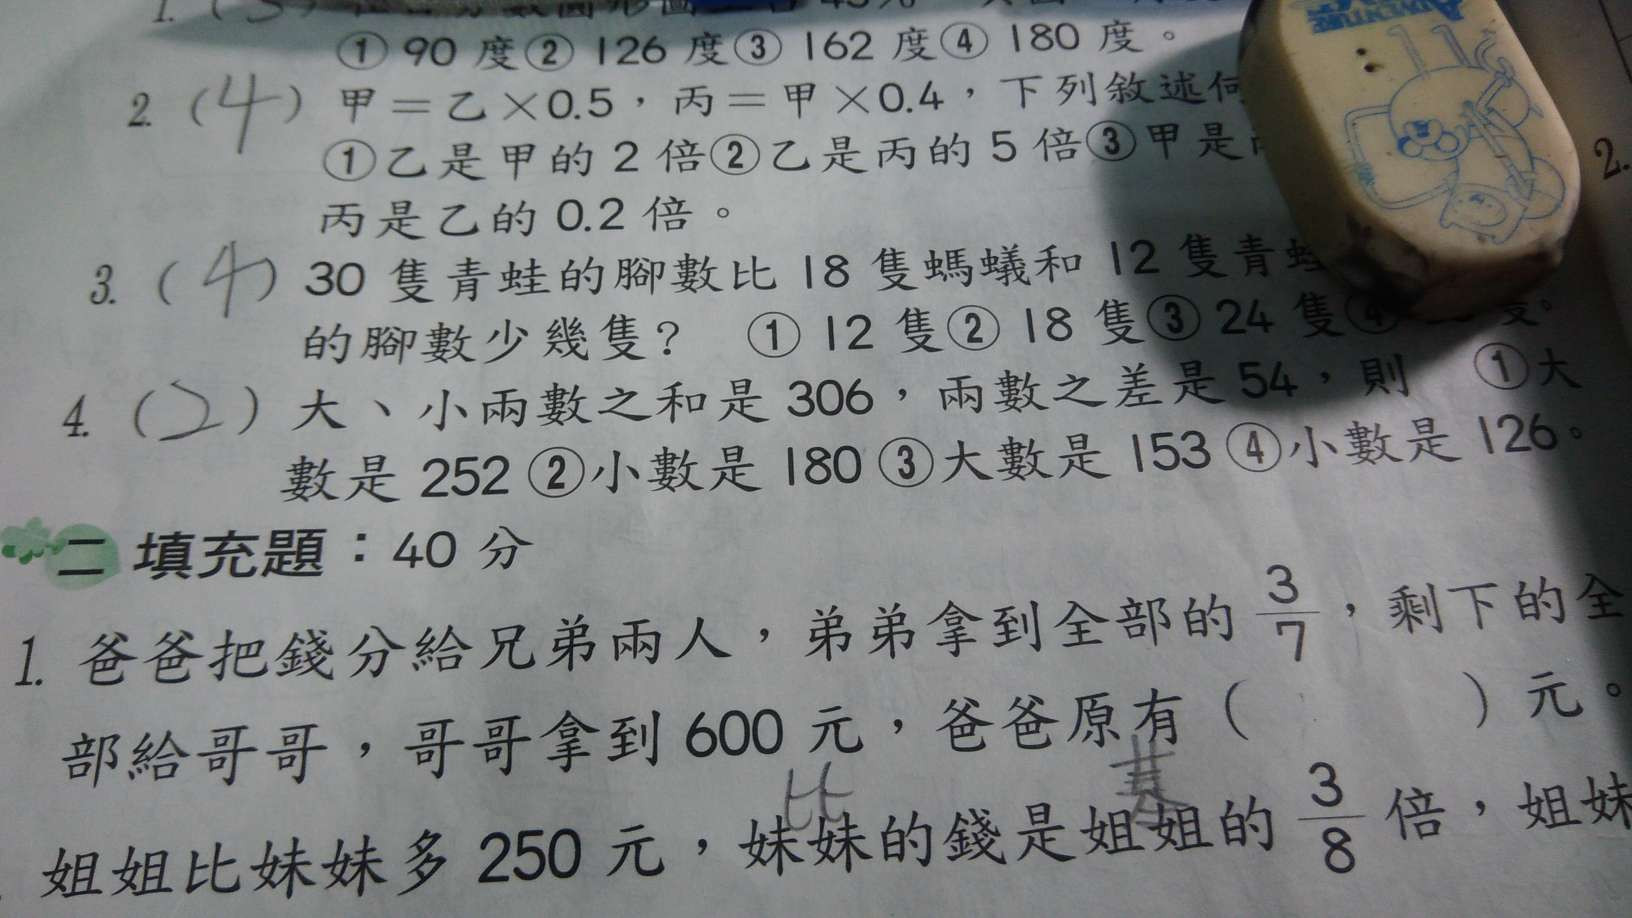 ① 90 度② 126 度③ 162 度④ 180 度。
2. (4) 甲＝乙×0.5，丙＝甲×0.4，下列敘述何
①乙是甲的 2 倍②乙是丙的 5 倍③甲是
丙是乙的 0.2 倍。
3. (4) 30 隻青蛙的腳數比 18 隻螞蟻和 12 隻青蛙
的腳數少幾隻？ ① 12 隻② 18 隻③ 24 隻④ 隻。
4. (2) 大、小兩數之和是 306，兩數之差是 54，則 ①大
數是 252 ②小數是 180 ③大數是 153 ④小數是 126。
二 填充題：40 分
1. 爸爸把錢分給兄弟兩人，弟弟拿到全部的 3/7，剩下的全
部給哥哥，哥哥拿到 600 元，爸爸原有（ ）元。
比 基
姐姐比妹妹多 250 元，妹妹的錢是姐姐的 3/8 倍，姐妹